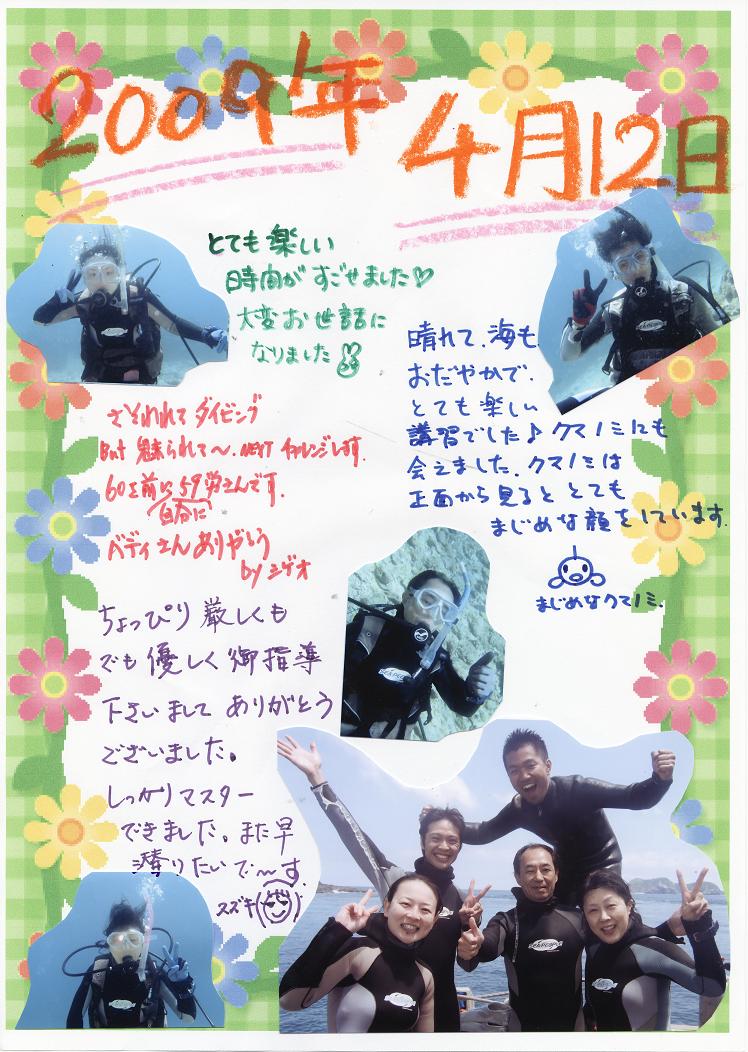 2009年 4月12日
とても楽しい
時間がすごせました♡
大変お世話に
なりました
晴れて、海も
おだやかで、
とても楽しい
講習でした♪クマノミにも
会えました。クマノミは
正面から見ると とても
まじめな顔をしています。
まじめなクマノミ.
さそわれて ダイビング
But 魅られて〜. NEXT チャレンジします.
60を前に59才さんです.
ベティさんありがとう
by シゲオ
ちょっぴり 厳しくも
でも 優しく 御指導
下さいまして ありがとう
ございました。
しっかりマスター
できました。また早
潜りたいで〜す.
スズキ